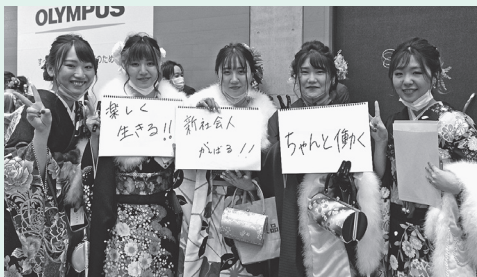 OLYMPUS
楽しく
生きる!!
新社会人
がんばる!!
ちゃんと働く